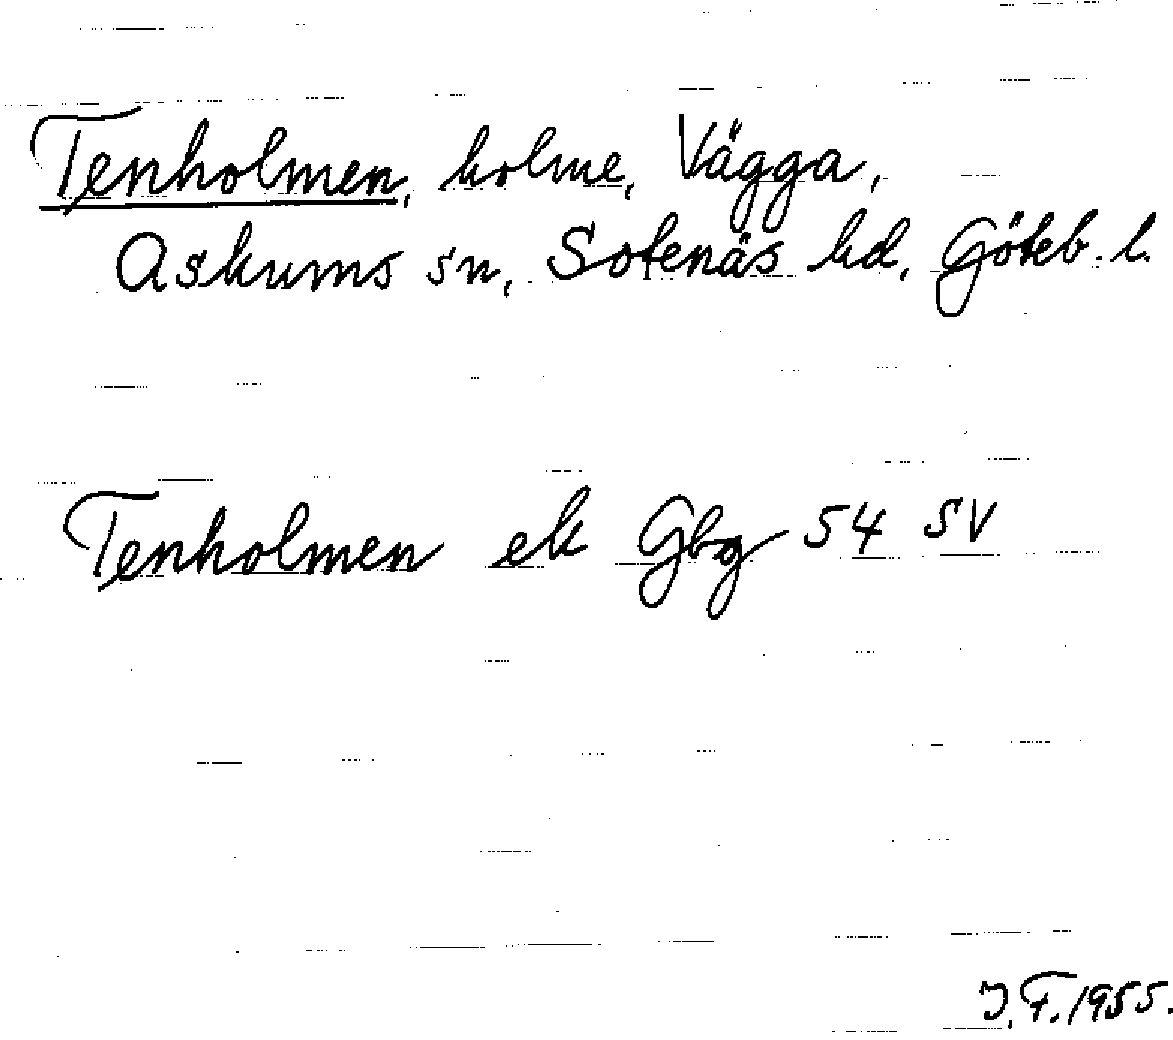 Tenholmen, holme, Vägga,
Askums sn, Sotenäs hd, Göteb. l.
Tenholmen ek Gbg 54 SV
J.F. 1955.